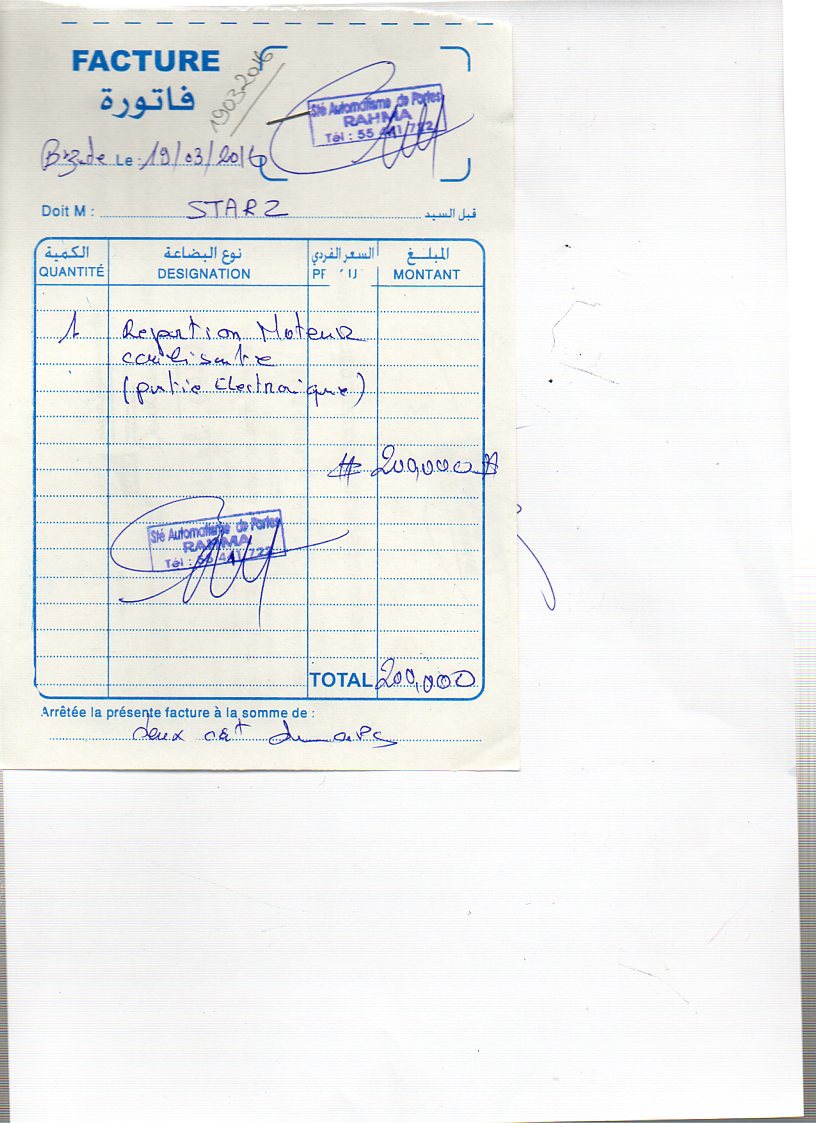 FACTURE
فاتورة
19032016
Sté Automatisme de Portes
RAHMA
Tél : 55 441 722
Le : 19/03/2016
Doit M : STARZ قبل السيد
الكمية نوع البضاعة السعر الفردي المبلغ
QUANTITÉ DESIGNATION MONTANT
1 Repartion Moteur
coulissante
(partie electronique)
# 200,000 #
Sté Automatisme de Portes
RAHMA
Tél : 55 441 722
TOTAL 200,000
Arrêtée la présente facture à la somme de :
deux cent dinars